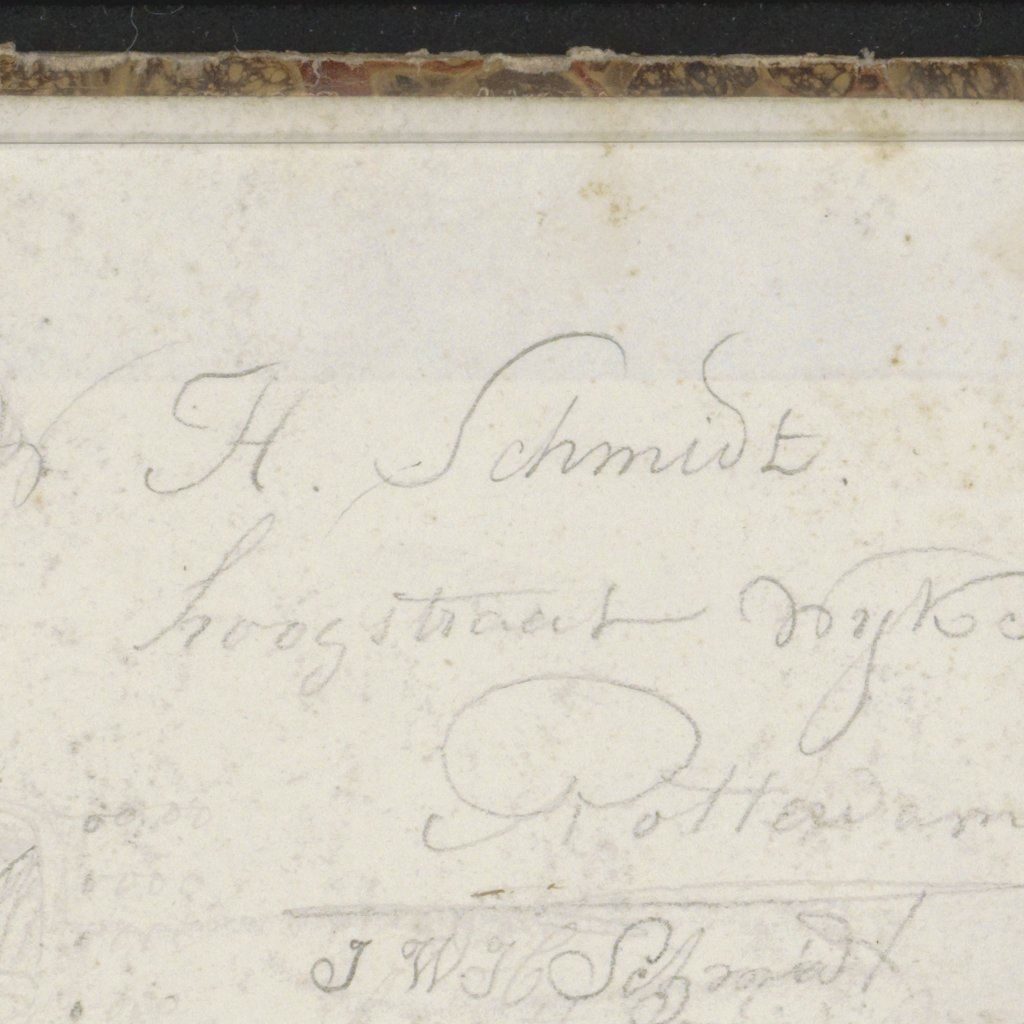 H. Schmidt.
hoogstraat Wyk
Rotterdam
J W H Schmidt